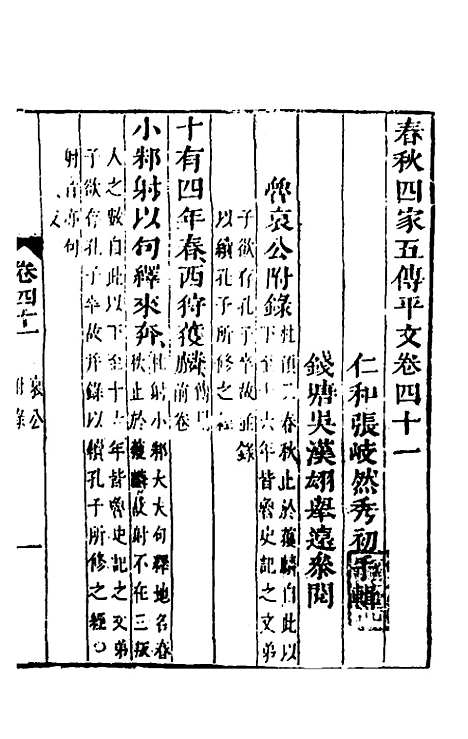 春秋四家五傳平文卷四十一
仁和張岐然秀初手輯
錢塘吳漢翊舉遠參閱
魯哀公附錄
杜預云春秋止於獲麟自此以
下至十六年皆魯史記之文弟
子欲存孔子卒故並錄
以續孔子所修之經
十有四年春西狩獲麟
傳見前卷
小邾射以句繹來奔
杜射小邾大夫句繹地名春
秋止於獲麟故射不在三叛
人之數自此以下至十六年皆魯史記之文弟
子欲存孔子卒故并錄以續孔子所修之經○
射音亦句
卷四十一
哀公
附錄
一